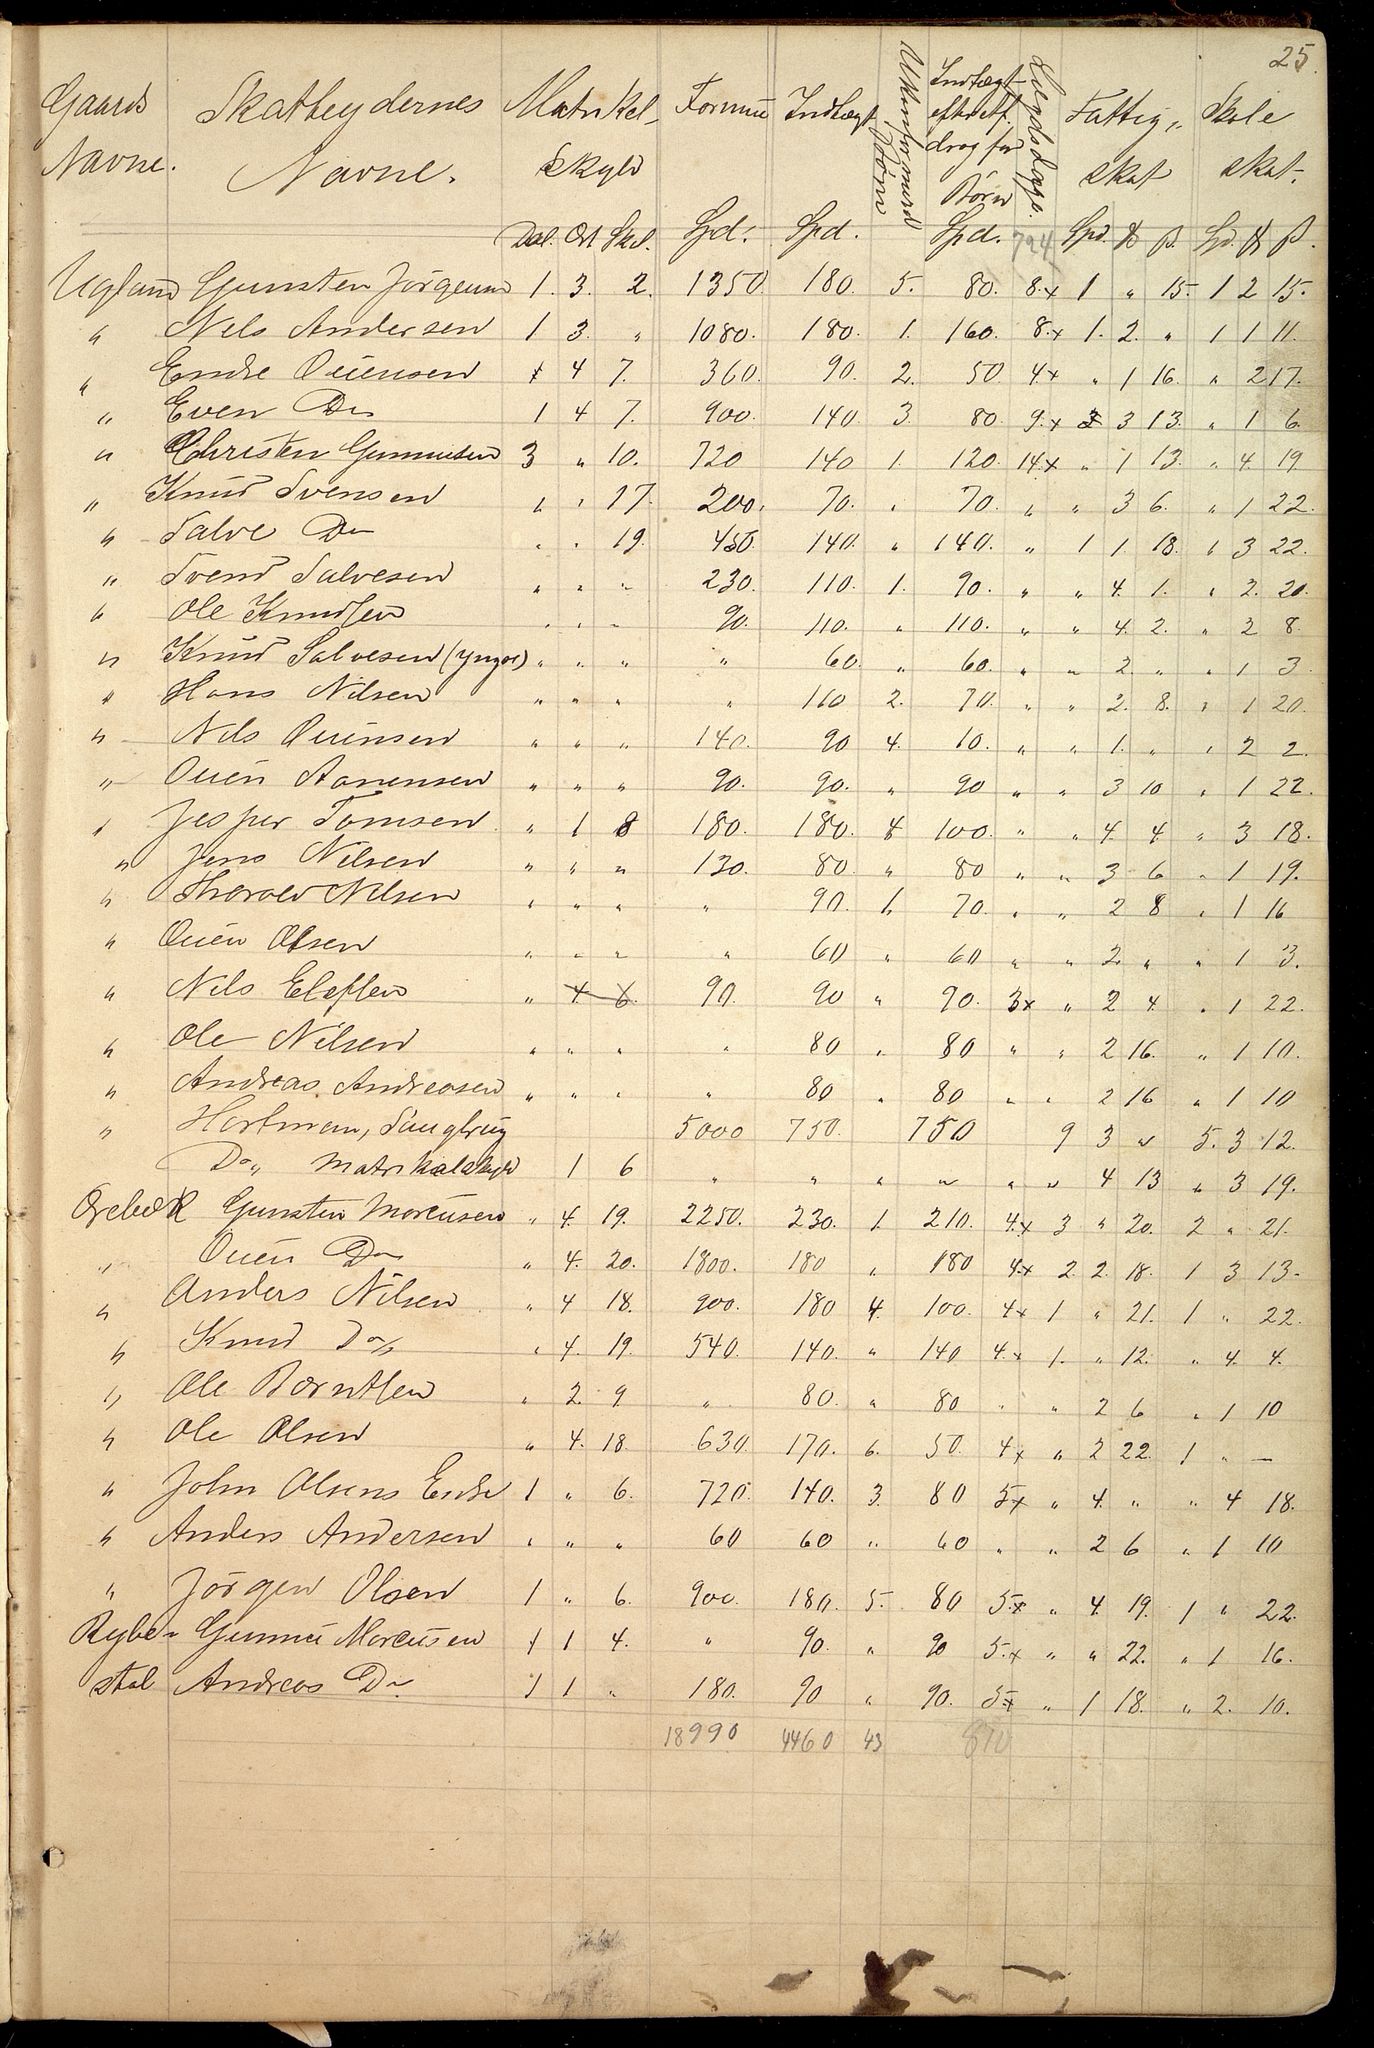 25.
Gaards Skatteydernes Matrikel- Formue Indtægt Indtægt Fattig- Skole
Navne. Navne. Skyld efter Af- skat skat.
drag for
Børn
Dal. Ort Skl. Spd. Spd. Spd. 794 Spd. ß Sp. ß.
Ugland Gunsten Jörgensen 1. 3. 2. 1350. 180. 5. 80. 8.x 1 " 15. 1 2 15.
" Nils Andersen 1 3. " 1080. 180. 1. 160. 8.x 1. 2. " 1 1 11.
" Endre Ouensen 4 7. 360. 90. 2. 50 4x " 1 16. " 2 17.
" Even Do 1 4 7. 900. 140. 3. 80. 9.x 3 13. " 1 6.
" Christen Gunnusen 3 " 10. 720 140 1. 120. 14x " 1 13. " 4. 19
" Knud Svensen " " 17. 200. 70. " 70. " " 3 6. " 1 22.
" Salve Do " " 19. 450. 140. " 140. " 1 1. 18. " 3 22.
" Svend Salvesen " " " 230. 110. 1. 90. " " 4. 1. " 2. 20.
" Ole Knudsen " " " 90. 110. " 110. " " 4. 2. " 2 8.
" Knud Salvesen (yngre) " " " " 60. " 60. " " 2. " " 1 3.
" Hans Nilsen " " " " 110 2. 70. " " 2. 8. " 1 20.
" Nils Ouensen " " " 140. 90 4. 10. " " 1. " " 2 2.
" Ouen Aanensen " " " 90. 90. " 90 " " 3 10 " 1 22.
" Jesper Tomsen " 1 8 180. 180. 4 100. " " 4. 4. " 3 18.
" Jens Nilsen " " " 130. 80. " 80 " " 3 6 " 1 19.
" Tharald Nilsen " " " " 90. 1. 70. " " 2 8 " 1 16
" Ouen Olsen " " " " 60 " 60 " " 2. " " 1 3.
" Nils Elefsen " 4. 6. 90. 90 " 90. 3x " 2 4. " 1 22.
" Ole Nilsen " " " " 80 " 80 " " 2 16. " 1 10.
" Andreas Andreasen " " " " 80 " 80 " " 2 16 " 1 10
" Hartman, Saugbrug 5000 750. 750 9 3 " 5. 3 12.
Do " Matrikulskyld 1 6 " " " " " " 4 13 " 3 19.
Örebæk Gunsten Morcusen " 4. 19. 2250. 230. 1. 210. 4.x 3 " 20. 2 " 21.
" Ouen Do " 4. 20. 1800. 180 " 180 4.x 2. 2. 18. 1 3 13.
" Anders Nilsen " 4 18. 900. 180 4. 100. 4x 1 " 21. 1 " 22.
" Knud Do " 4. 19. 540. 140. " 140 4.x 1. " 12. " 4. 4.
" Ole Berntsen " 2. 9 " 80. " 80 " " 2 6 " 1 10
" Ole Olsen " 4. 18. 630. 170. 6. 50. 4x " 2 22. 1 " —
" John Olsens Enke 1 " 6. 720. 140. 3. 80 5x " 4. " " 4 18.
" Anders Andersen " " " 60 60 " 60 " " 2 6 " 1 10
" Jörgen Olsen 1 " 6. 900. 180. 5. 80 5.x " 4. 19. 1 " 22.
Rybe- Gunnu Morcusen 1 1 4. " 90. " 90 5.x " " 22. " 1 16.
stal Andreas Do 1 1 " 180. 90 " 90. 5x " 1 18. " 2. 10.
18990 4460 43 810